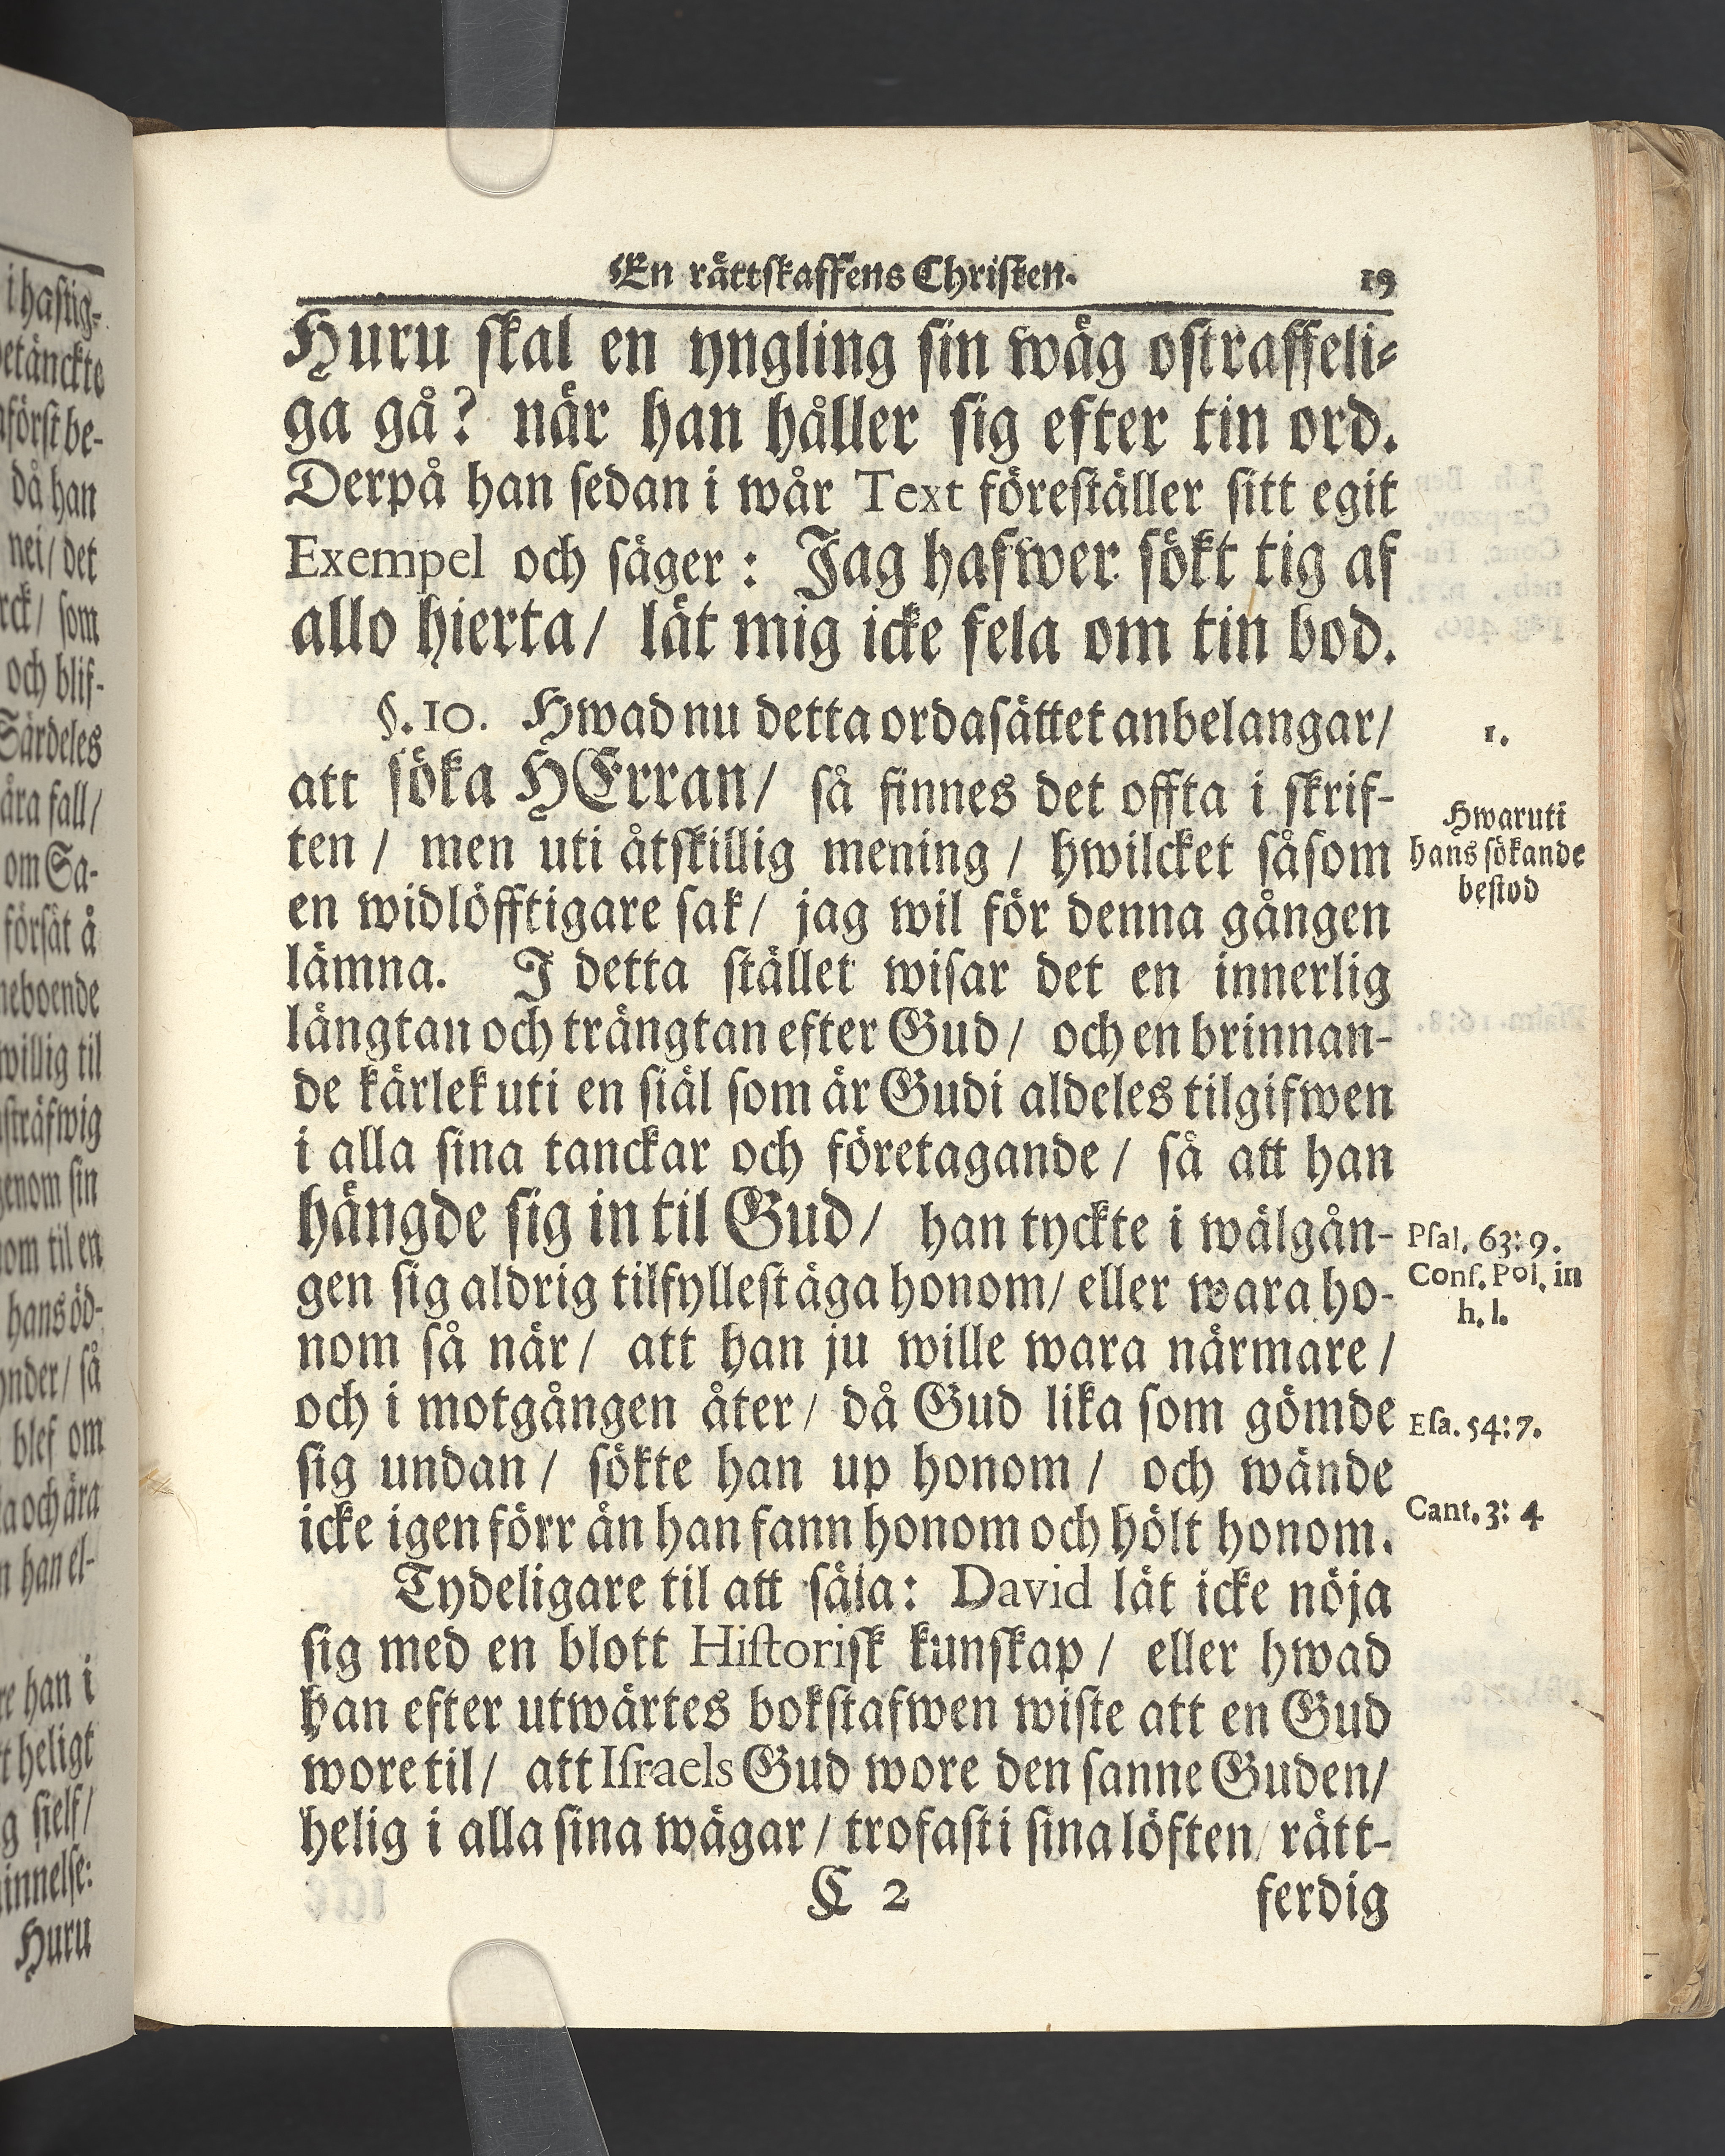 En rättskaffens Christen.
19
Huru skal en yngling sin wäg ostraffeli-
ga gå? när han håller sig efter tin ord.
Derpå han sedan i wår Text föreställer sitt egit
Exempel och säger: Jag hafwer sökt tig af
allo hierta/ lät mig icke fela om tin bod.
§. 10. Hwad nu detta ordasättet anbelangar/
att söka HErran/ så finnes det offta i skrif-
ten/ men uti åtskillig mening/ hwilcket såsom
en widlöfftigare sak/ jag wil för denna gången
lämna. I detta stället wisar det en innerlig
längtan och trängtan efter Gud/ och en brinnan-
de kärlek uti en siäl som är Gudi aldeles tilgifwen
i alla sina tanckar och företagande/ så att han
hängde sig in til Gud/ han tyckte i wälgån-
gen sig aldrig tilfyllest äga honom/ eller wara ho-
nom så när/ att han ju wille wara närmare/
och i motgången åter/ då Gud lika som gömde
sig undan/ sökte han up honom/ och wände
icke igen förr än han fann honom och hölt honom.
Tydeligare til att säia: David lät icke nöja
sig med en blott Historisk kunskap/ eller hwad
han efter utwärtes bokstafwen wiste att en Gud
wore til/ att Israels Gud wore den sanne Guden/
helig i alla sina wägar/ trofast i sina löften/ rätt-
C 2
ferdig
1.
Hwaruti
hans sökande
bestod
Psal. 63:9.
Conf. Pol. in
h. l.
Esa. 54:7.
Cant. 3: 4
i hastig-
etänckte
först be-
då han
nei/ det
som
och blif-
Särdeles
fall/
om Sa-
försåt å
neboende
willig til
genom sin
om til en
hans öd-
så
blef om
a och ära
han el-
han i
heligt
sielf/
Huru